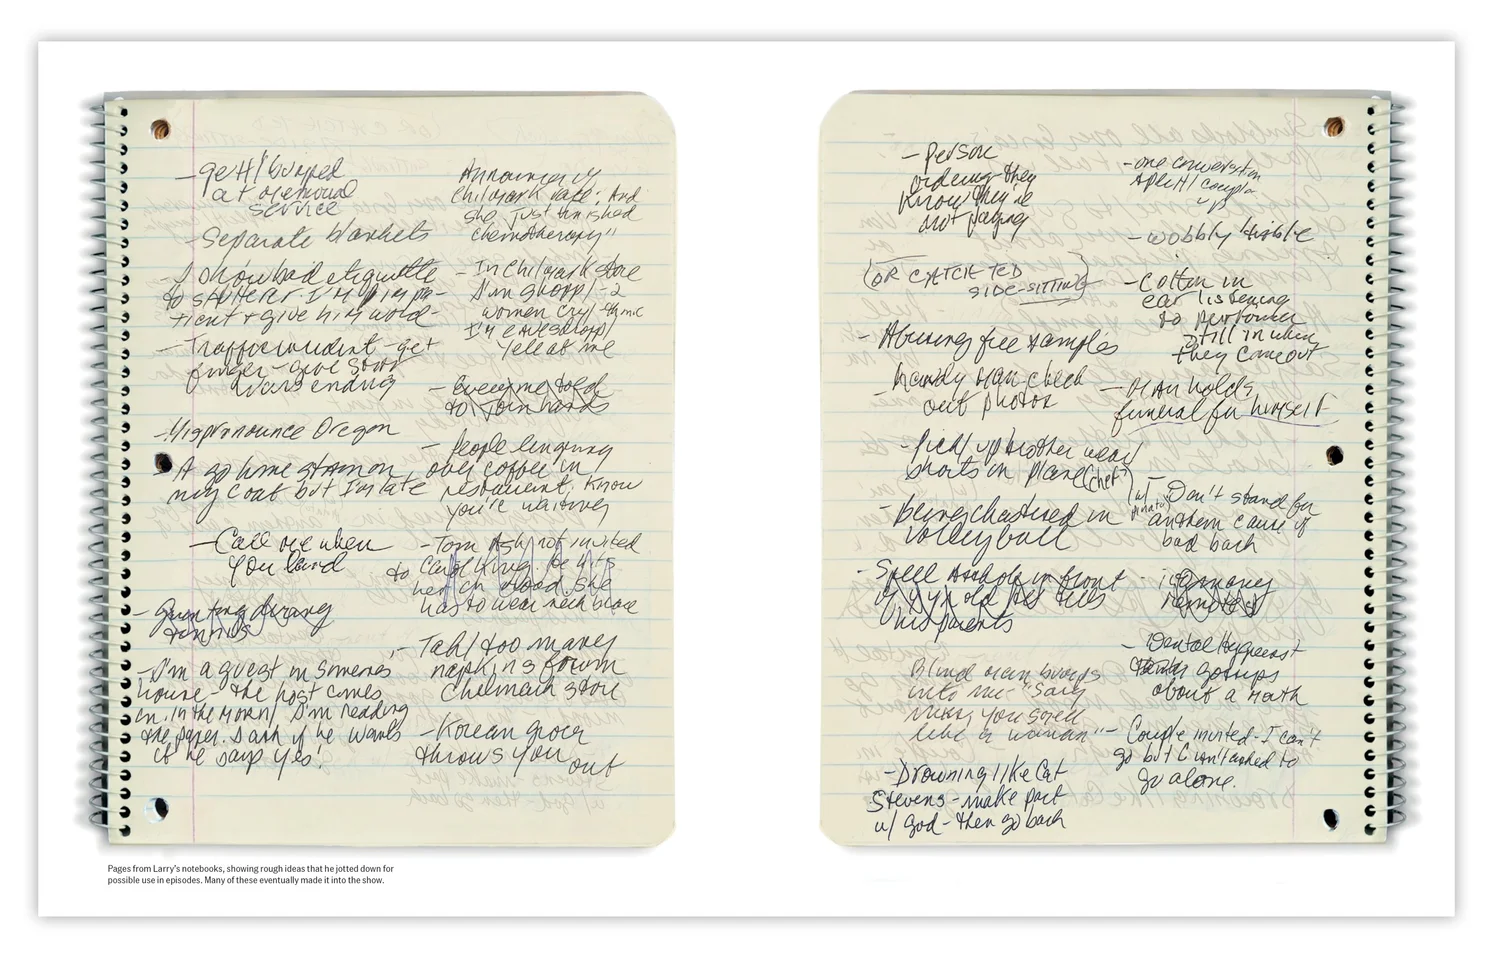 - get H/ bumped
at removal
service
- Separate blankets
- I show bad etiquette
to stutterer. I'm impa-
tient + give him word-
- Traffic incident - get
finger - give Star
Wars ending
- Mispronounce Oregon
- A go home stain on
my coat but I'm late
- Call me when
you land
- Grunting during
tennis
- I'm a guest in someone's
house - the host comes
in. in the morn/ I'm reading
the paper. I ask if he wants
it he says yes!
Announcing
Chilmark race: And
she just finished
chemotherapy"
- In Chilmark store
I'm shopp/ - 2
women cry/
I'm eavesdropp/
Yell at me
- Everyone told
to join hands
- People lingering
over coffee in
restaurant. Know
you're waiting
- Tom Ash not invited
to Carol King. He hits
her in
has to wear neck brace
- Tak/ too many
napkins from
Chilmark store
- Korean grocer
throws you out
- Person
ordering they
know they're
not paying
(OR CATCH TED
SIDE-SITTING)
- Abusing free samples
- handy man check
out photos
- Pick/ up brother wear/
shorts on plane (Chet)
- being chastised in
volleyball
- Spell Asshole in front
of yr old tells
his parents
Blind man bumps
into me "Sorry
you smell
like a woman"
- Drowning like Cat
Stevens - make pact
w/ God - then go back
- one conversation
split/ couple
up
- wobbly table
- Cotton in
ear listening
to performer
- fill in when
they come out
- Man holds
funeral for himself
- Don't stand for
anthem cause of
bad back
- Germany
remotes
- Dental Hygienist
goes ups
about a month
- Couple invited - I can't
go but C isn't asked to
go alone.
Pages from Larry's notebooks, showing rough ideas that he jotted down for
possible use in episodes. Many of these eventually made it into the show.